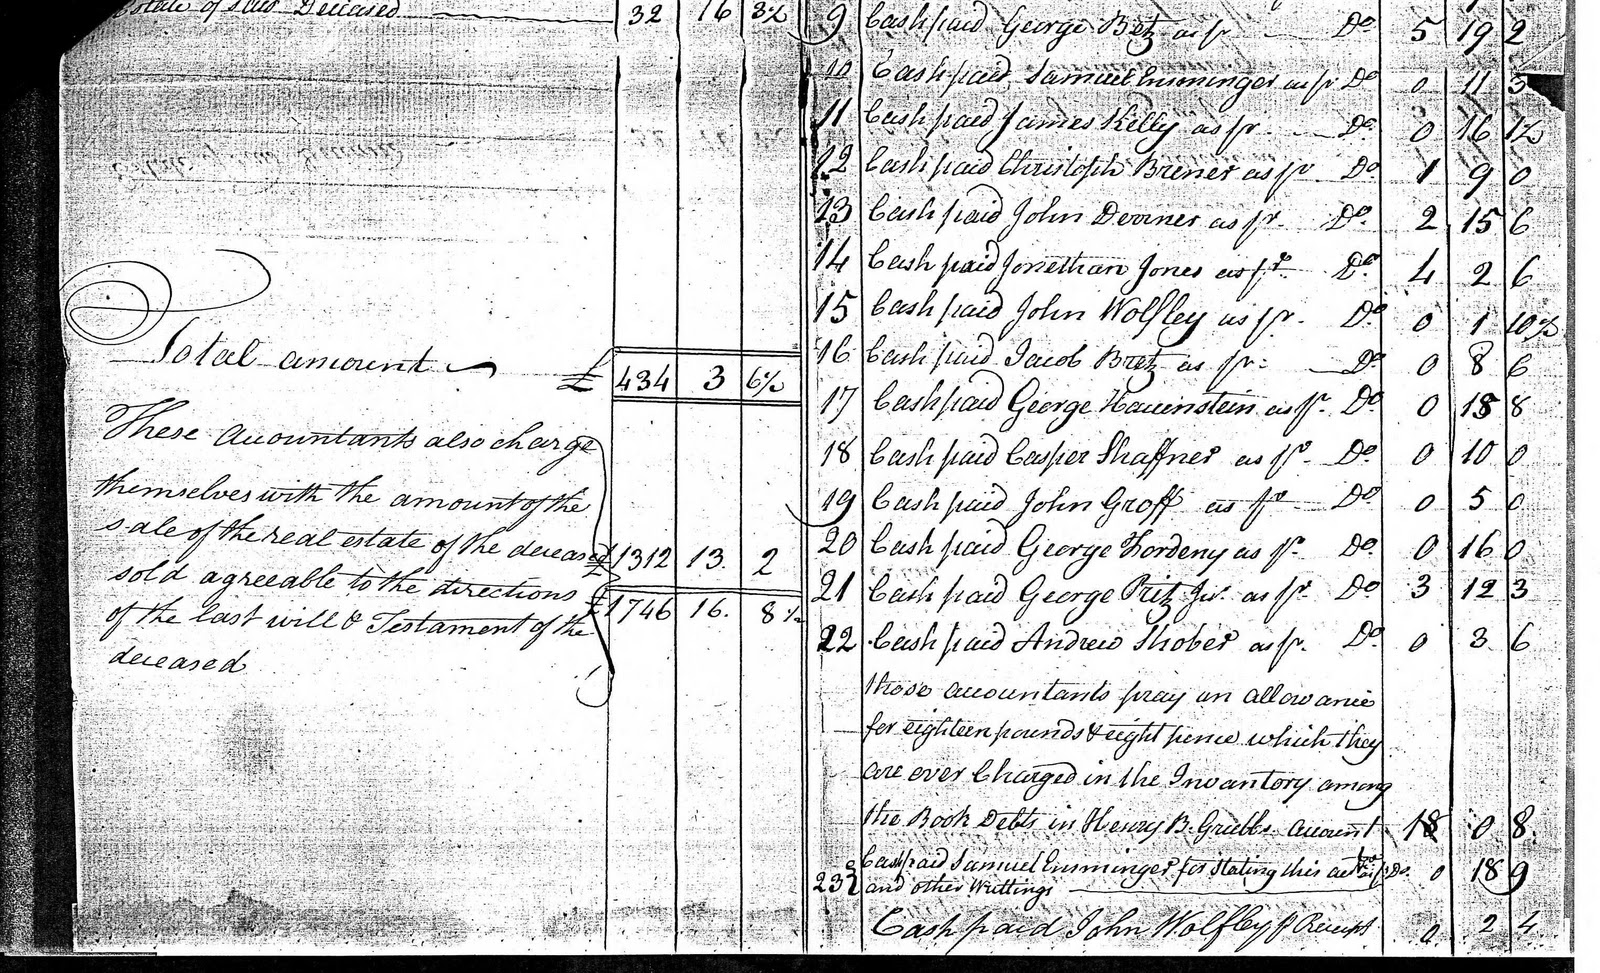 Estate of said Deceased 32 16 8½
Total amount £ 434 3 6½
These Accountants also charge
themselves with the amount of the
sale of the real estate of the deceased £ 1312 13. 2
sold agreeable to the directions
of the last will & Testament of the £ 1746 16. 8½
deceased
9 Cash paid George Bretz as pr Do 5 19 2
10 Cash paid Samuel Ensminger as pr Do 0 11 3
11 Cash paid James Kelly as pr Do 0 16 1½
12 Cash paid Christoph Brener as pr Do 1 9 0
13 Cash paid John Devner as pr Do 2 15 6
14 Cash paid Jonethan Jones as pr Do 4 2 6
15 Cash paid John Wolfley as pr Do 0 1 10½
16 Cash paid Jacob Bretz as pr Do 0 8 6
17 Cash paid George Hauenstein as pr Do 0 18 8
18 Cash paid Casper Shaffner as pr Do 0 10 0
19 Cash paid John Groff as pr Do 0 5 0
20 Cash paid George Fordeny as pr Do 0 16 0
21 Cash paid George Pritz Jur. as pr Do 3 12 3
22 Cash paid Andrew Shober as pr. Do 0 3 6
those accountants pray an allowance
for eighteen pounds & eight pence which they
are over Charged in the Invantory among
the Book Debts in Henry B. Grubbs account 18 0 8.
Cash paid Samuel Ensminger for Stating this
23 and other Writtings 0 18 9
Cash paid John Wolfley pr Receipt 0 2 4